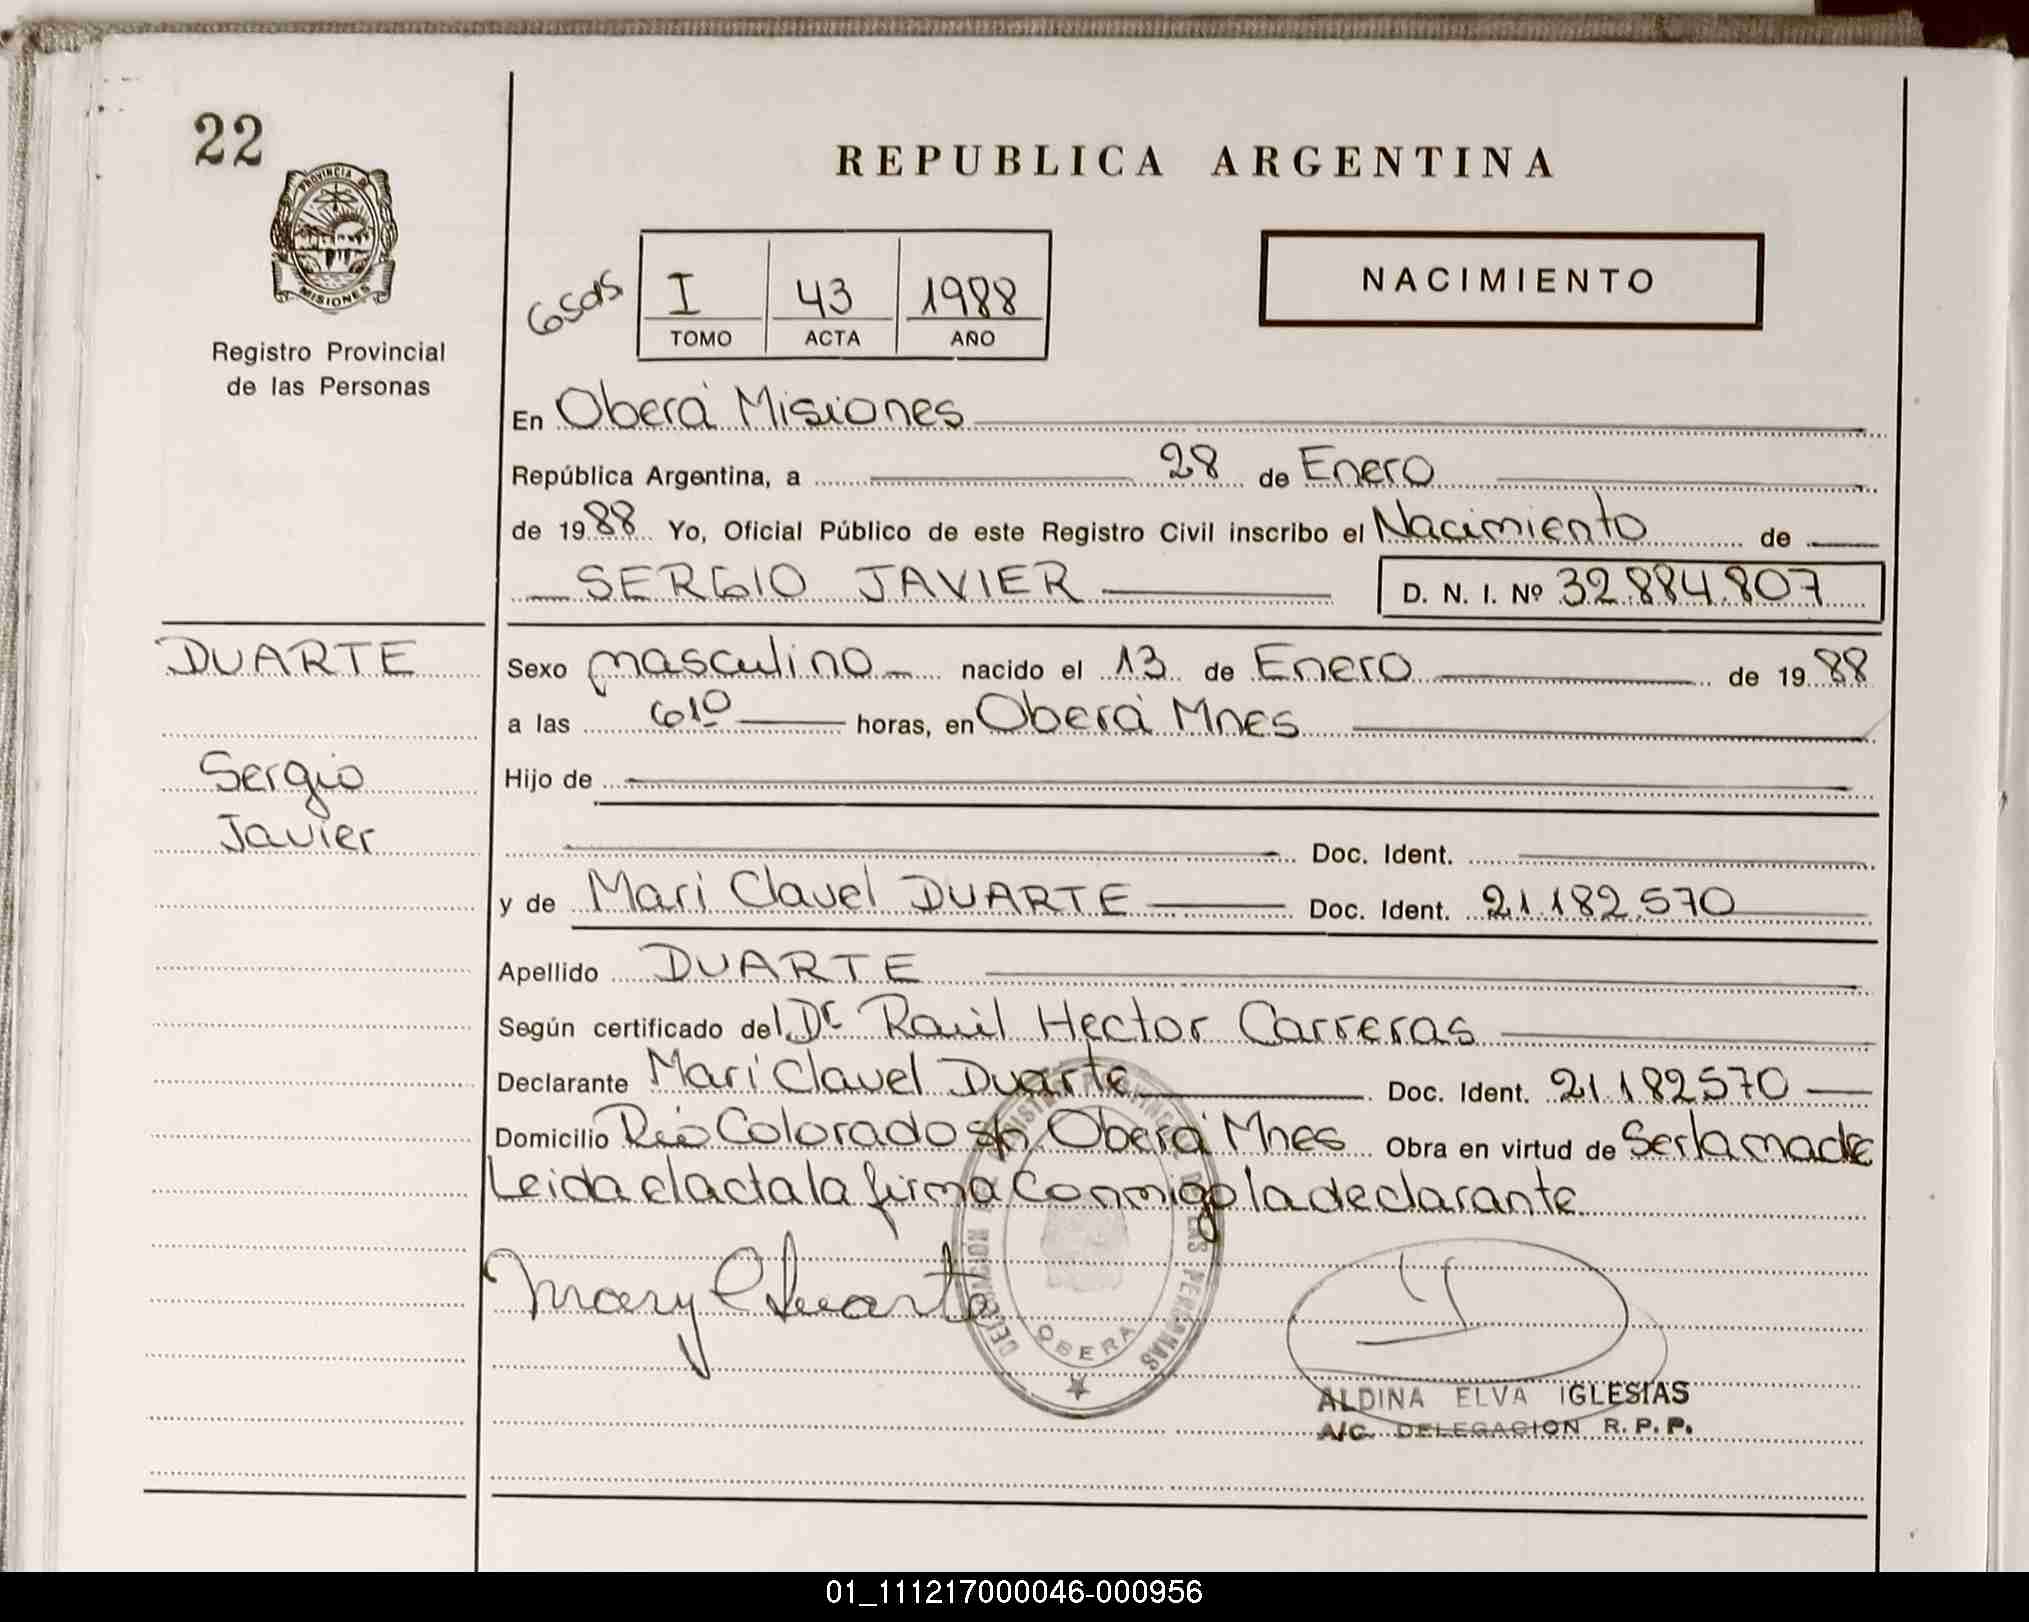 22
PROVINCIA DE
MISIONES
Registro Provincial
de las Personas
REPUBLICA ARGENTINA
I 43 1988
TOMO ACTA AÑO
NACIMIENTO
En Oberá Misiones
República Argentina, a 28 de Enero
de 1988 Yo, Oficial Público de este Registro Civil inscribo el Nacimiento de
SERGIO JAVIER D. N. I. Nº 32.884.807
DUARTE
Sergio
Javier
Sexo masculino nacido el 13 de Enero de 1988
a las 6 10 horas, en Oberá Mnes
Hijo de
Doc. Ident.
y de Mari Clavel DUARTE Doc. Ident. 21.182.570
Apellido DUARTE
Según certificado del Dr Raúl Hector Carreras
Declarante Mari Clavel Duarte Doc. Ident. 21.182570
Domicilio Río Colorado s/n Oberá Mnes Obra en virtud de Ser la madre
Leida el acta la firma conmigo la declarante
Mary C Duarte
OBERA
ALDINA ELVA IGLESIAS
A/C. DELEGACION R. P. P.
01_111217000046-000956